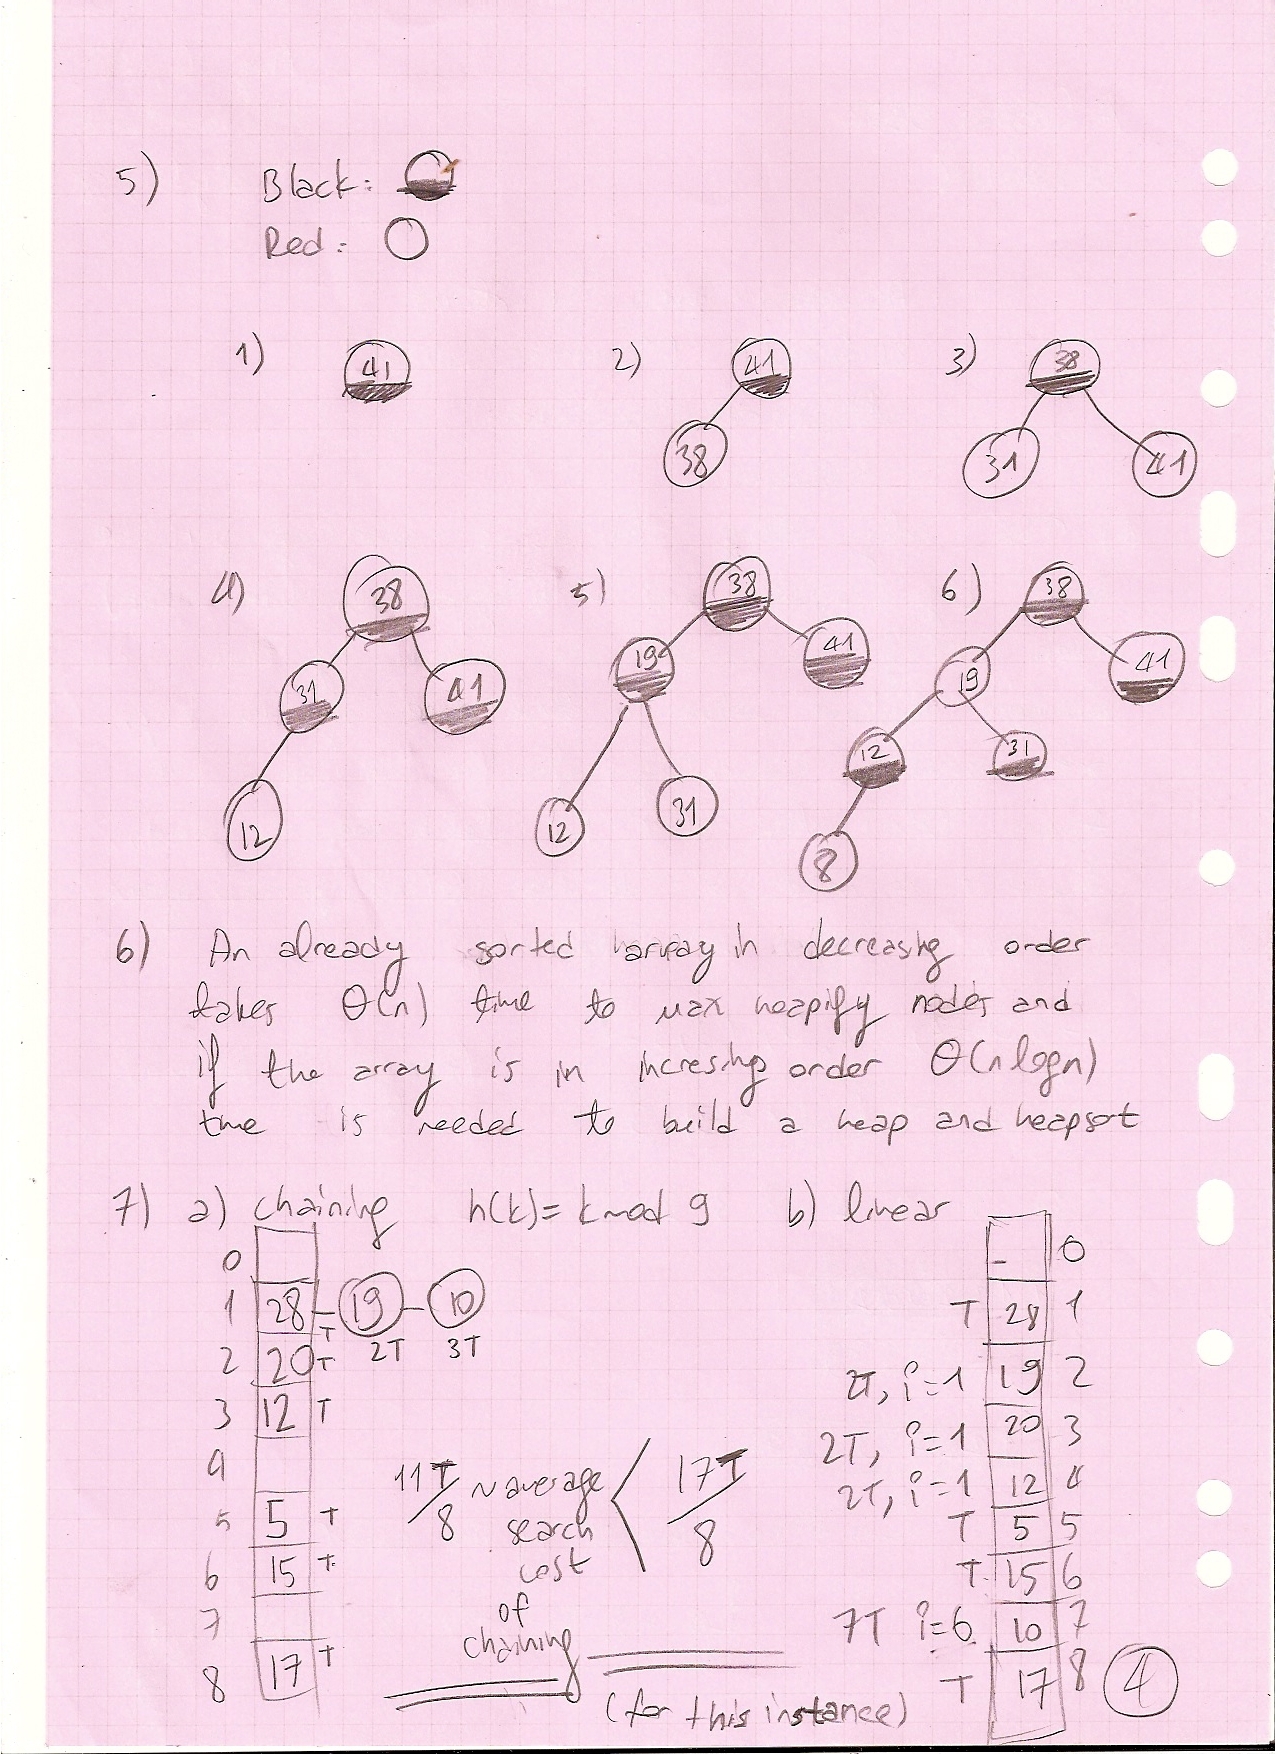 5) Black:
Red:
1) 41
2) 41
38
3) 38
31 41
4) 38
31 41
12
5) 38
19 41
12 31
6) 38
19 41
12 31
8
6) An already sorted array in decreasing order
takes Θ(n) time to max heapify nodes and
if the array is in incresing order Θ(n logn)
time is needed to build a heap and heapsort
7) a) chaining h(k)= k mod 9 b) linear
0
1 28 T 19 2T 10 3T
2 20 T
3 12 T
4
5 5 T
6 15 T
7
8 17 T
11T/8 ~ average search cost of chaining < 17T/8
(for this instance)
- 0
T 28 1
2T, i=1 19 2
2T, i=1 20 3
2T, i=1 12 4
T 5 5
T 15 6
7T i=6 10 7
T 17 8
4